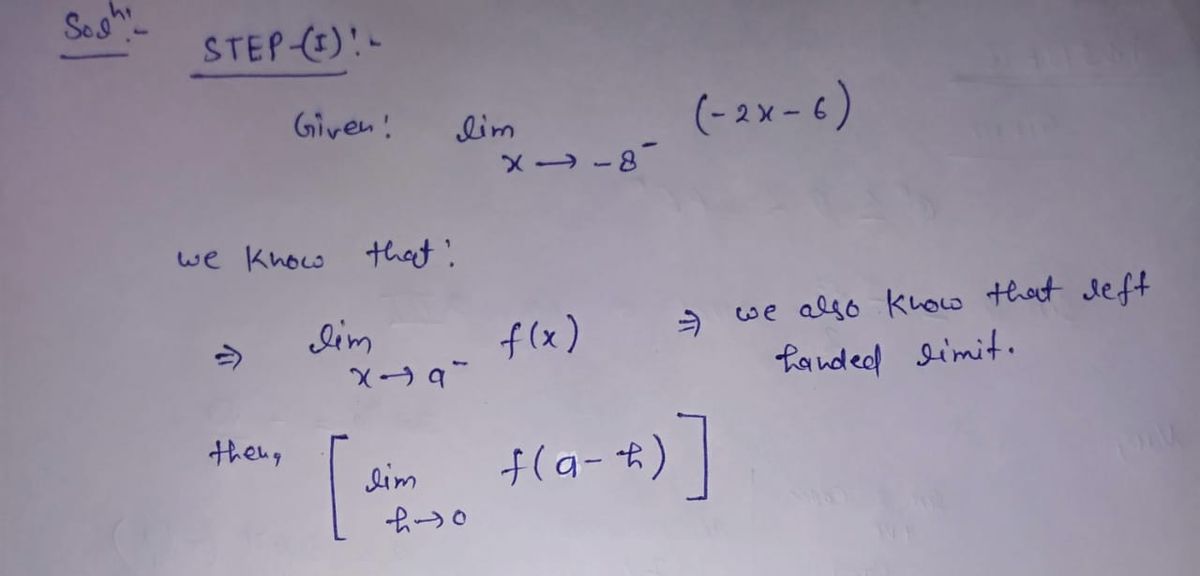 Solⁿ:-
STEP-(I):-
Given: lim x → -8⁻ (-2x-6)
we know that:
⇒ lim x→a⁻ f(x) ⇒ we also know that left
handed limit.
then, [lim h→0 f(a-h)]